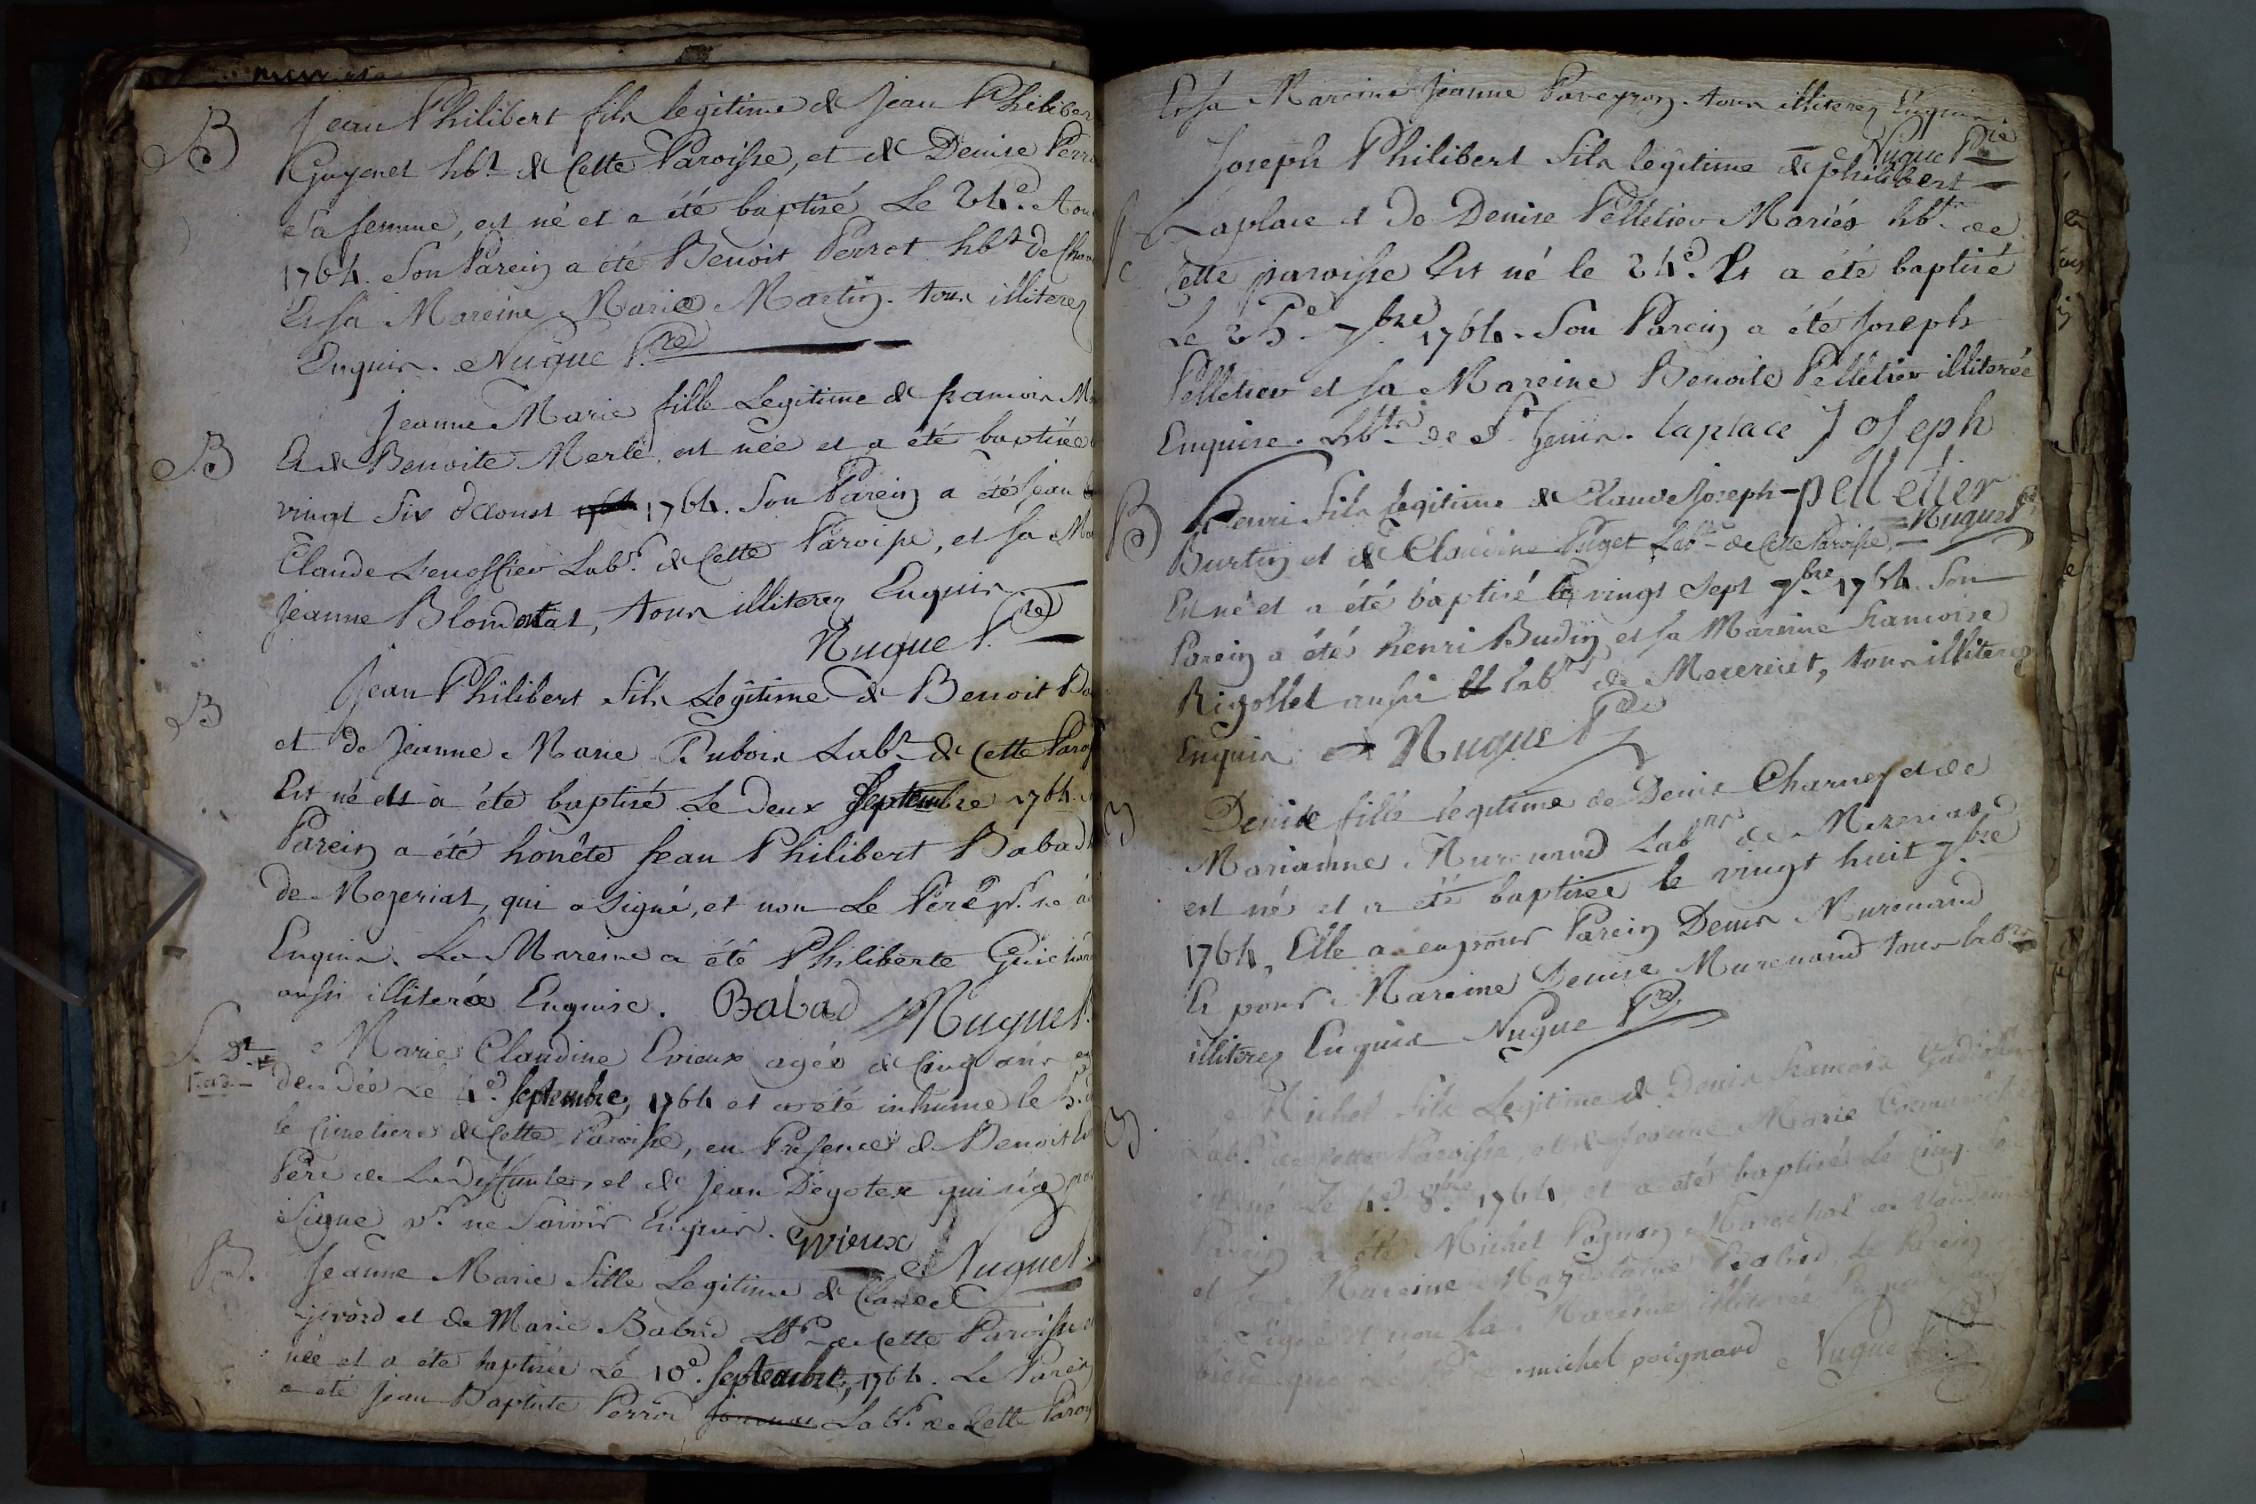 B
Jean Philibert fils legitime de Jean Philiber
Guyenet hbt de Cette Paroisse, et de Denise Perr
Sa femme, est né et a été baptisé Le 24e. Aou
1764. Son Parein a été Benoit Perret hbt de
Et sa Mareine Marie Martin. tous illiterez
Enquis. Nugue Pre
B
Jeanne Marie fille Legitime de francois M
Et de Benoite Merle est née et a été baptisée
vingt Six d'aoust 1764. Son Parein a été Jean
Claude Lab. de Cette Paroisse, et sa Ma
Jeanne tous illiterez Enquis
Nugue P.re
B
Jean Philibert fils Legitime de Benoit
et de Jeanne Marie Dubois Labr de Cette Paroi
Est né et a été baptisé Le deux Septembre 1764.
Parein a été honête Jean Philibert Babad
de Mezeriat, qui a Signé, et non Le Pere pr. ne
Enquis. La Mareine a été Philiberte Guichard
aussi illiterée Enquise. Babad Nugue P.
Marie Claudine Evieux agée de Cinq ans
decedée Le 4e. Septembre, 1764 et a été inhumé le 5.
le Cimetiere de Cette Paroisse, en Presence de Benoit
Père de La deffunte, et de Jean Degotex qui n'a
Signe pr. ne Savoir Enquis. Evieux Nugue P.
B.
Jeanne Marie fille Legitime de Claude
et de Marie Babad de Cette Paroisse
née et a été baptisée Le 10e. Septembre, 1764. Le Parein
a été Jean Baptiste Perrod Labr. de Cette Paroi
Et sa Mareine Jeanne Paveyron. tous illiterez Enquis
Nugue Pre
Joseph Philibert fils legitime de philibert
Laplace et de Denise Pelletier Mariés hbts de
Cette paroisse Est né le 24e. Et a été baptisé
Le 25e 7bre 1764. Son Parein a été Joseph
Pelletier et sa Mareine Benoite Pelletier illiterée
Enquise. hbts de St Genis. laplace Joseph
pelletier
B
Henri fils legitime de Claude Joseph
Nugue P
Burtin et de Claudine Puget Labrs de Cette Paroisse,
Est né et a été baptisé le vingt Sept 7bre 1764. Son
Parein a été henri Budin et sa Mareine francoise
Rigollet aussi labrs de Mezeriat, tous illiterez
Enquis Nugue Pre
B
Denise fille legitime de Denis Charney et de
Marianne Murenand Labrs de Mezeriat
est né et a été baptisée le vingt huit 7bre
1764, Elle a eu pour Parein Denis Murenand
Et pour Mareine Denise Murenand tous
illiterez Enquis Nugue Pre
B.
Michel fils Legitime de Denis francois
Labr. de Cette Paroisse et de Jeanne Marie
est né Le 4e. 8bre. 1764 et a été baptisé Le Cinq.
Parein a été Michel Marechal a
et Sa Mareine Magdelaine Babad. Le Parein
Signé et non La Mareine illiterée
michel poignard Nugue P.